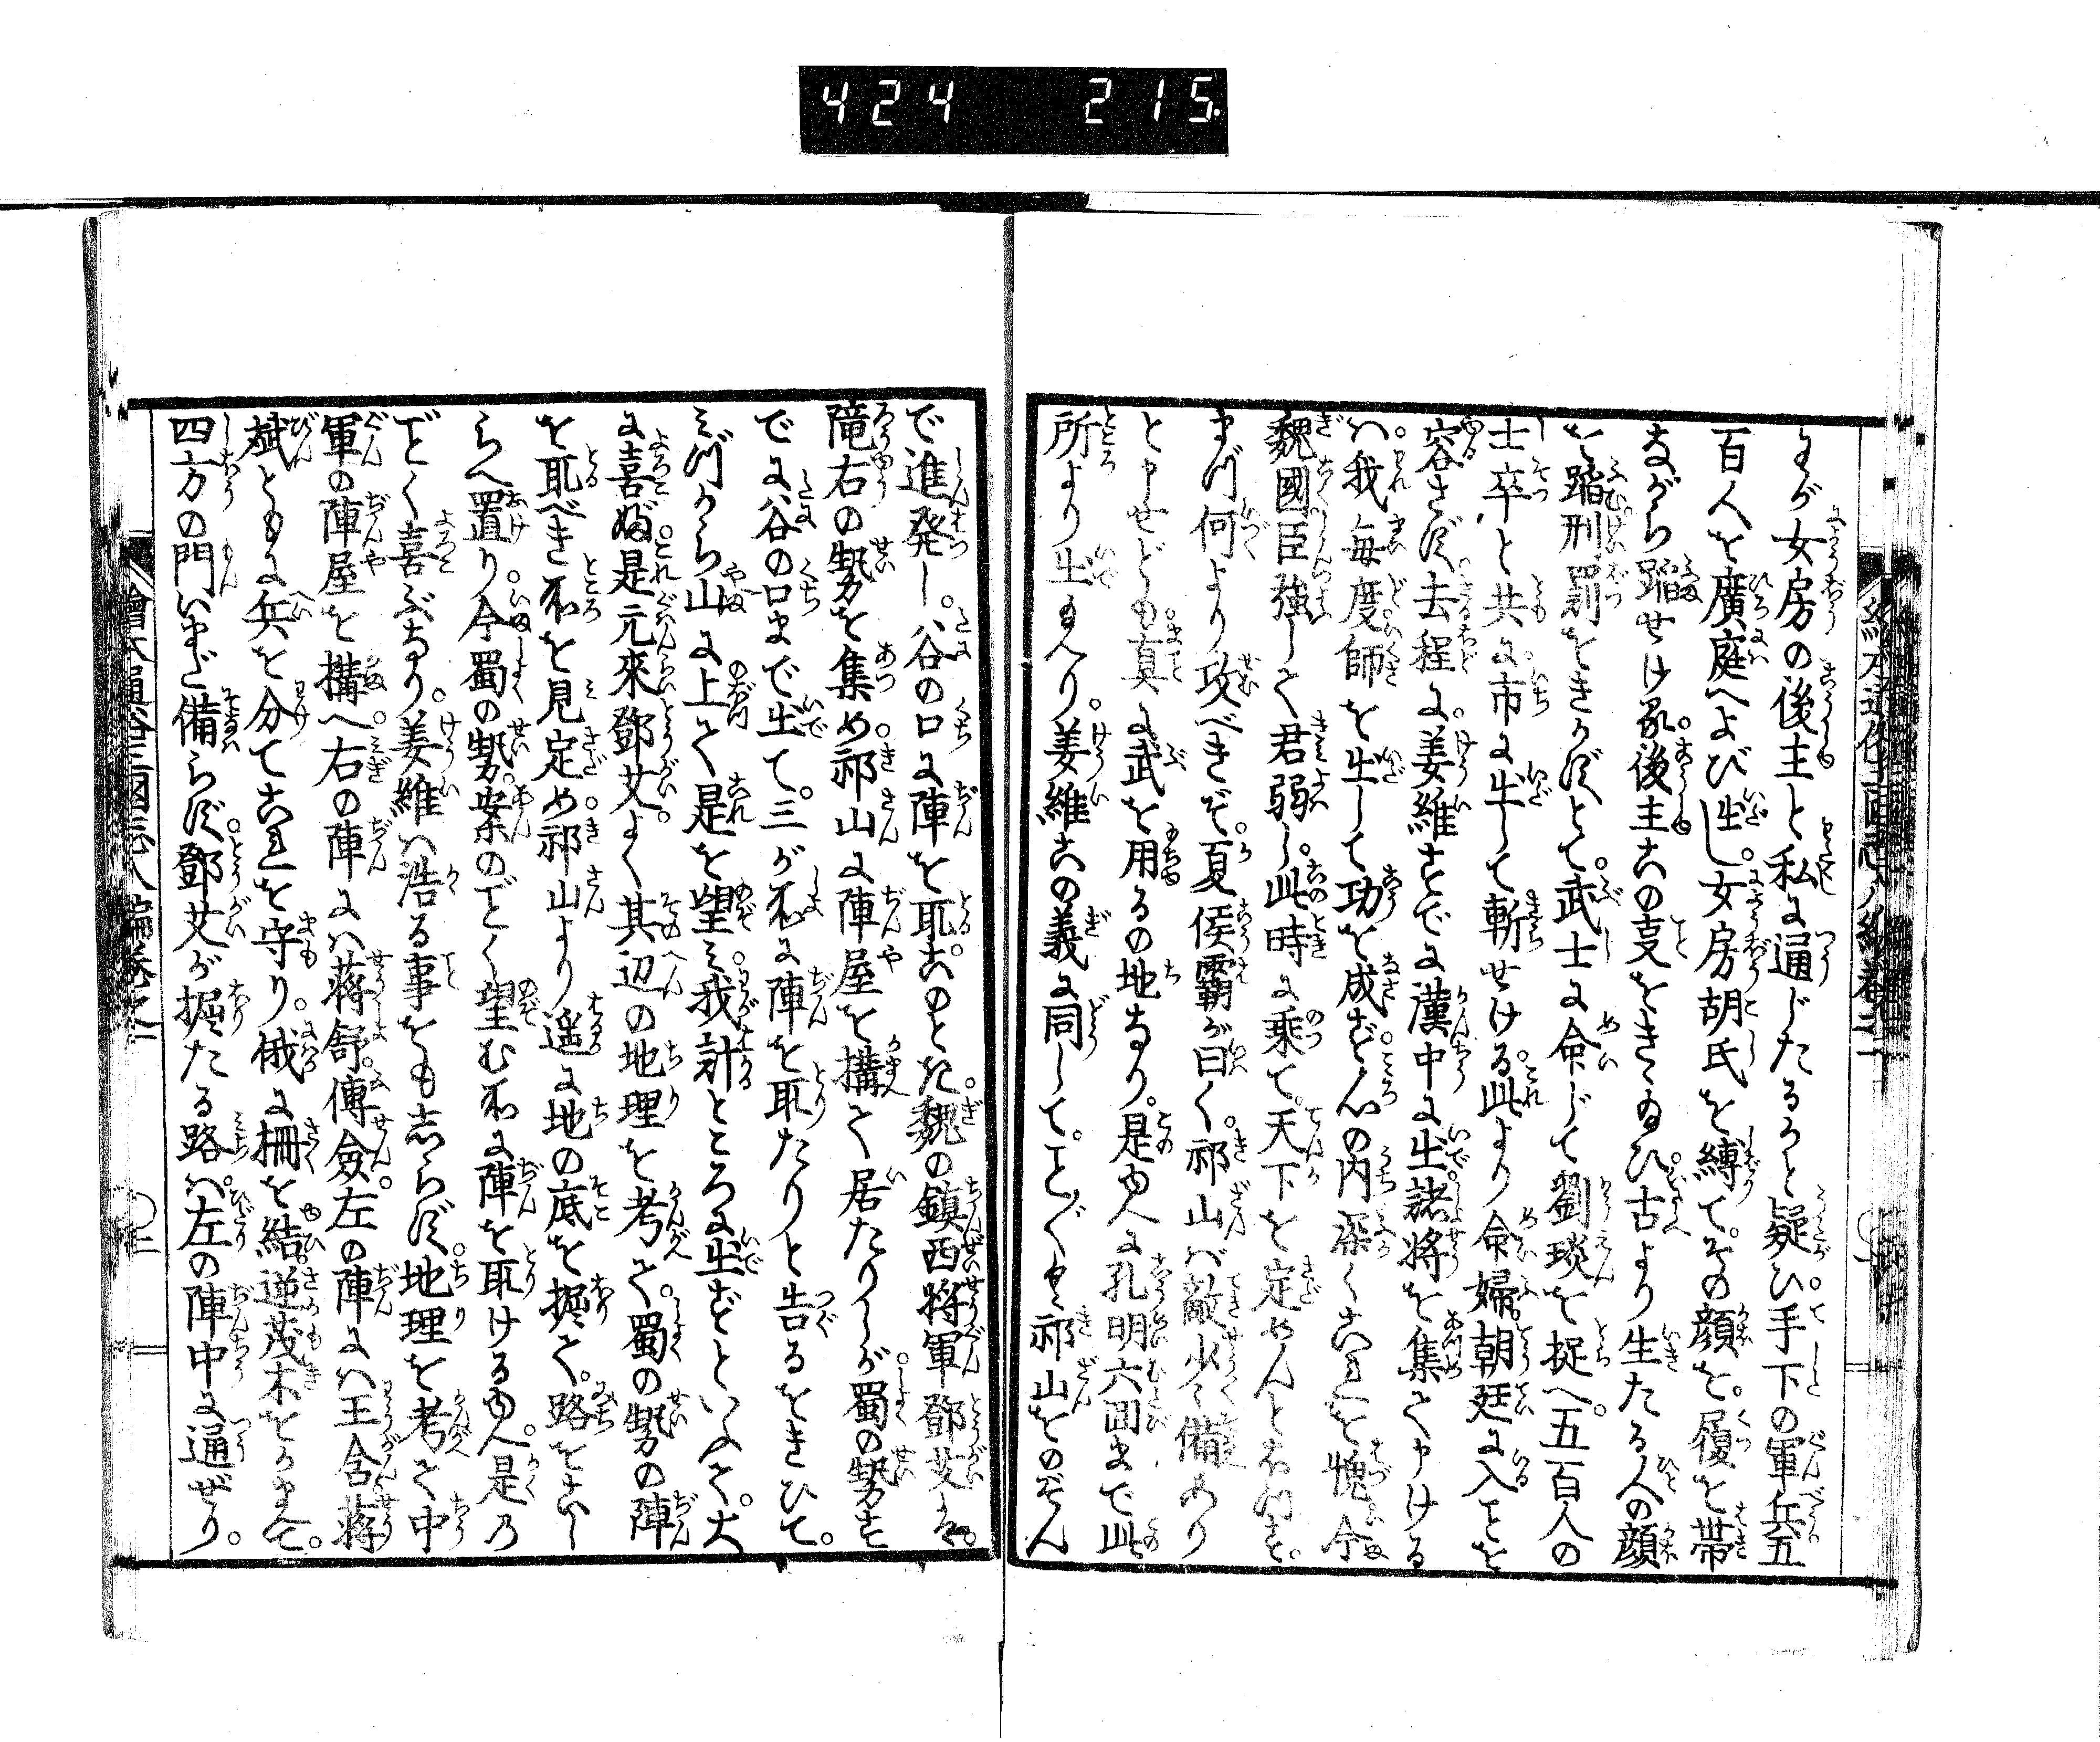 424 215.
わが女房の後主と私に通じたるかと疑ひ。手下の軍兵五
百人を廣庭へよび出し。女房胡氏を縛て。その顔を。履を帯
ながら蹈せけり。後主この支をきゝ給ひ。古より生たる人の顔
を蹈刑罰をきかずとて。武士に命じて劉琰を捉へ。五百人の
士卒と共に市に出して斬せける。此より命婦。朝廷に入ことを
容さず。去程に。姜維すでに漢中に出。諸将を集て申ける
ハ。我毎度師を出して功を成ず。心の内深くこれを愧。今
魏國臣強して君弱し。此時に乗て。天下を定めんとおもふ。
まづ何より攻べきぞ。夏侯霸が曰く。祁山ハ敵少く備あり
と申せども。真に武を用るの地なり。是ゆへに孔明六囬まで此
所より出給へり。姜維この義に同じて。ことごとく祁山をのぞん
で進発し。谷の口に陣を取。このとき。魏の鎮西将軍鄧艾は。
隴右の勢を集め。祁山に陣屋を構て居たりしが。蜀の勢す
でに谷の口まで出て。三が所に陣を取たりと告るをきひて。
みづから山に上て是を望み。我計ところに出ずといふて。大
に喜ぶ。是元來鄧艾。よく其辺の地理を考て。蜀の勢の陣
を取べき所を見定め。祁山より遥に地の底を掘て。路をこし
らへ置り。今蜀の勢。案のごとく望む所に陣を取けるゆへ。是乃
ごとく喜ぶなり。姜維ハ浩る事をも志らず。地理を考て中
軍の陣屋を構へ。右の陣にハ蒋舒。傅僉。左の陣にハ王含。蒋
斌ともに兵を分てこれを守り。俄に柵を結。逆茂木をかまへて。
四方の門いまだ備らず。鄧艾が掘たる路ハ。左の陣中に通ぜり。